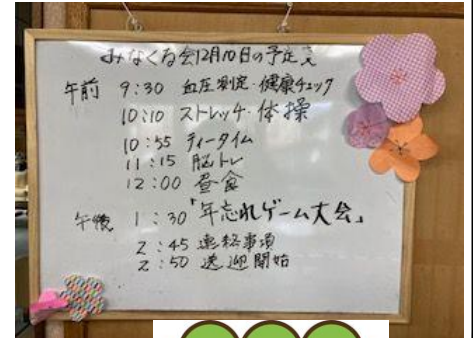 みなくる会12月10日の予定
午前 9:30 血圧測定・健康チェック
10:10 ストレッチ・体操
10:55 ティータイム
11:15 脳トレ
12:00 昼食
午後 1:30「年忘れゲーム大会」
2:45 連絡事項
2:50 送迎開始